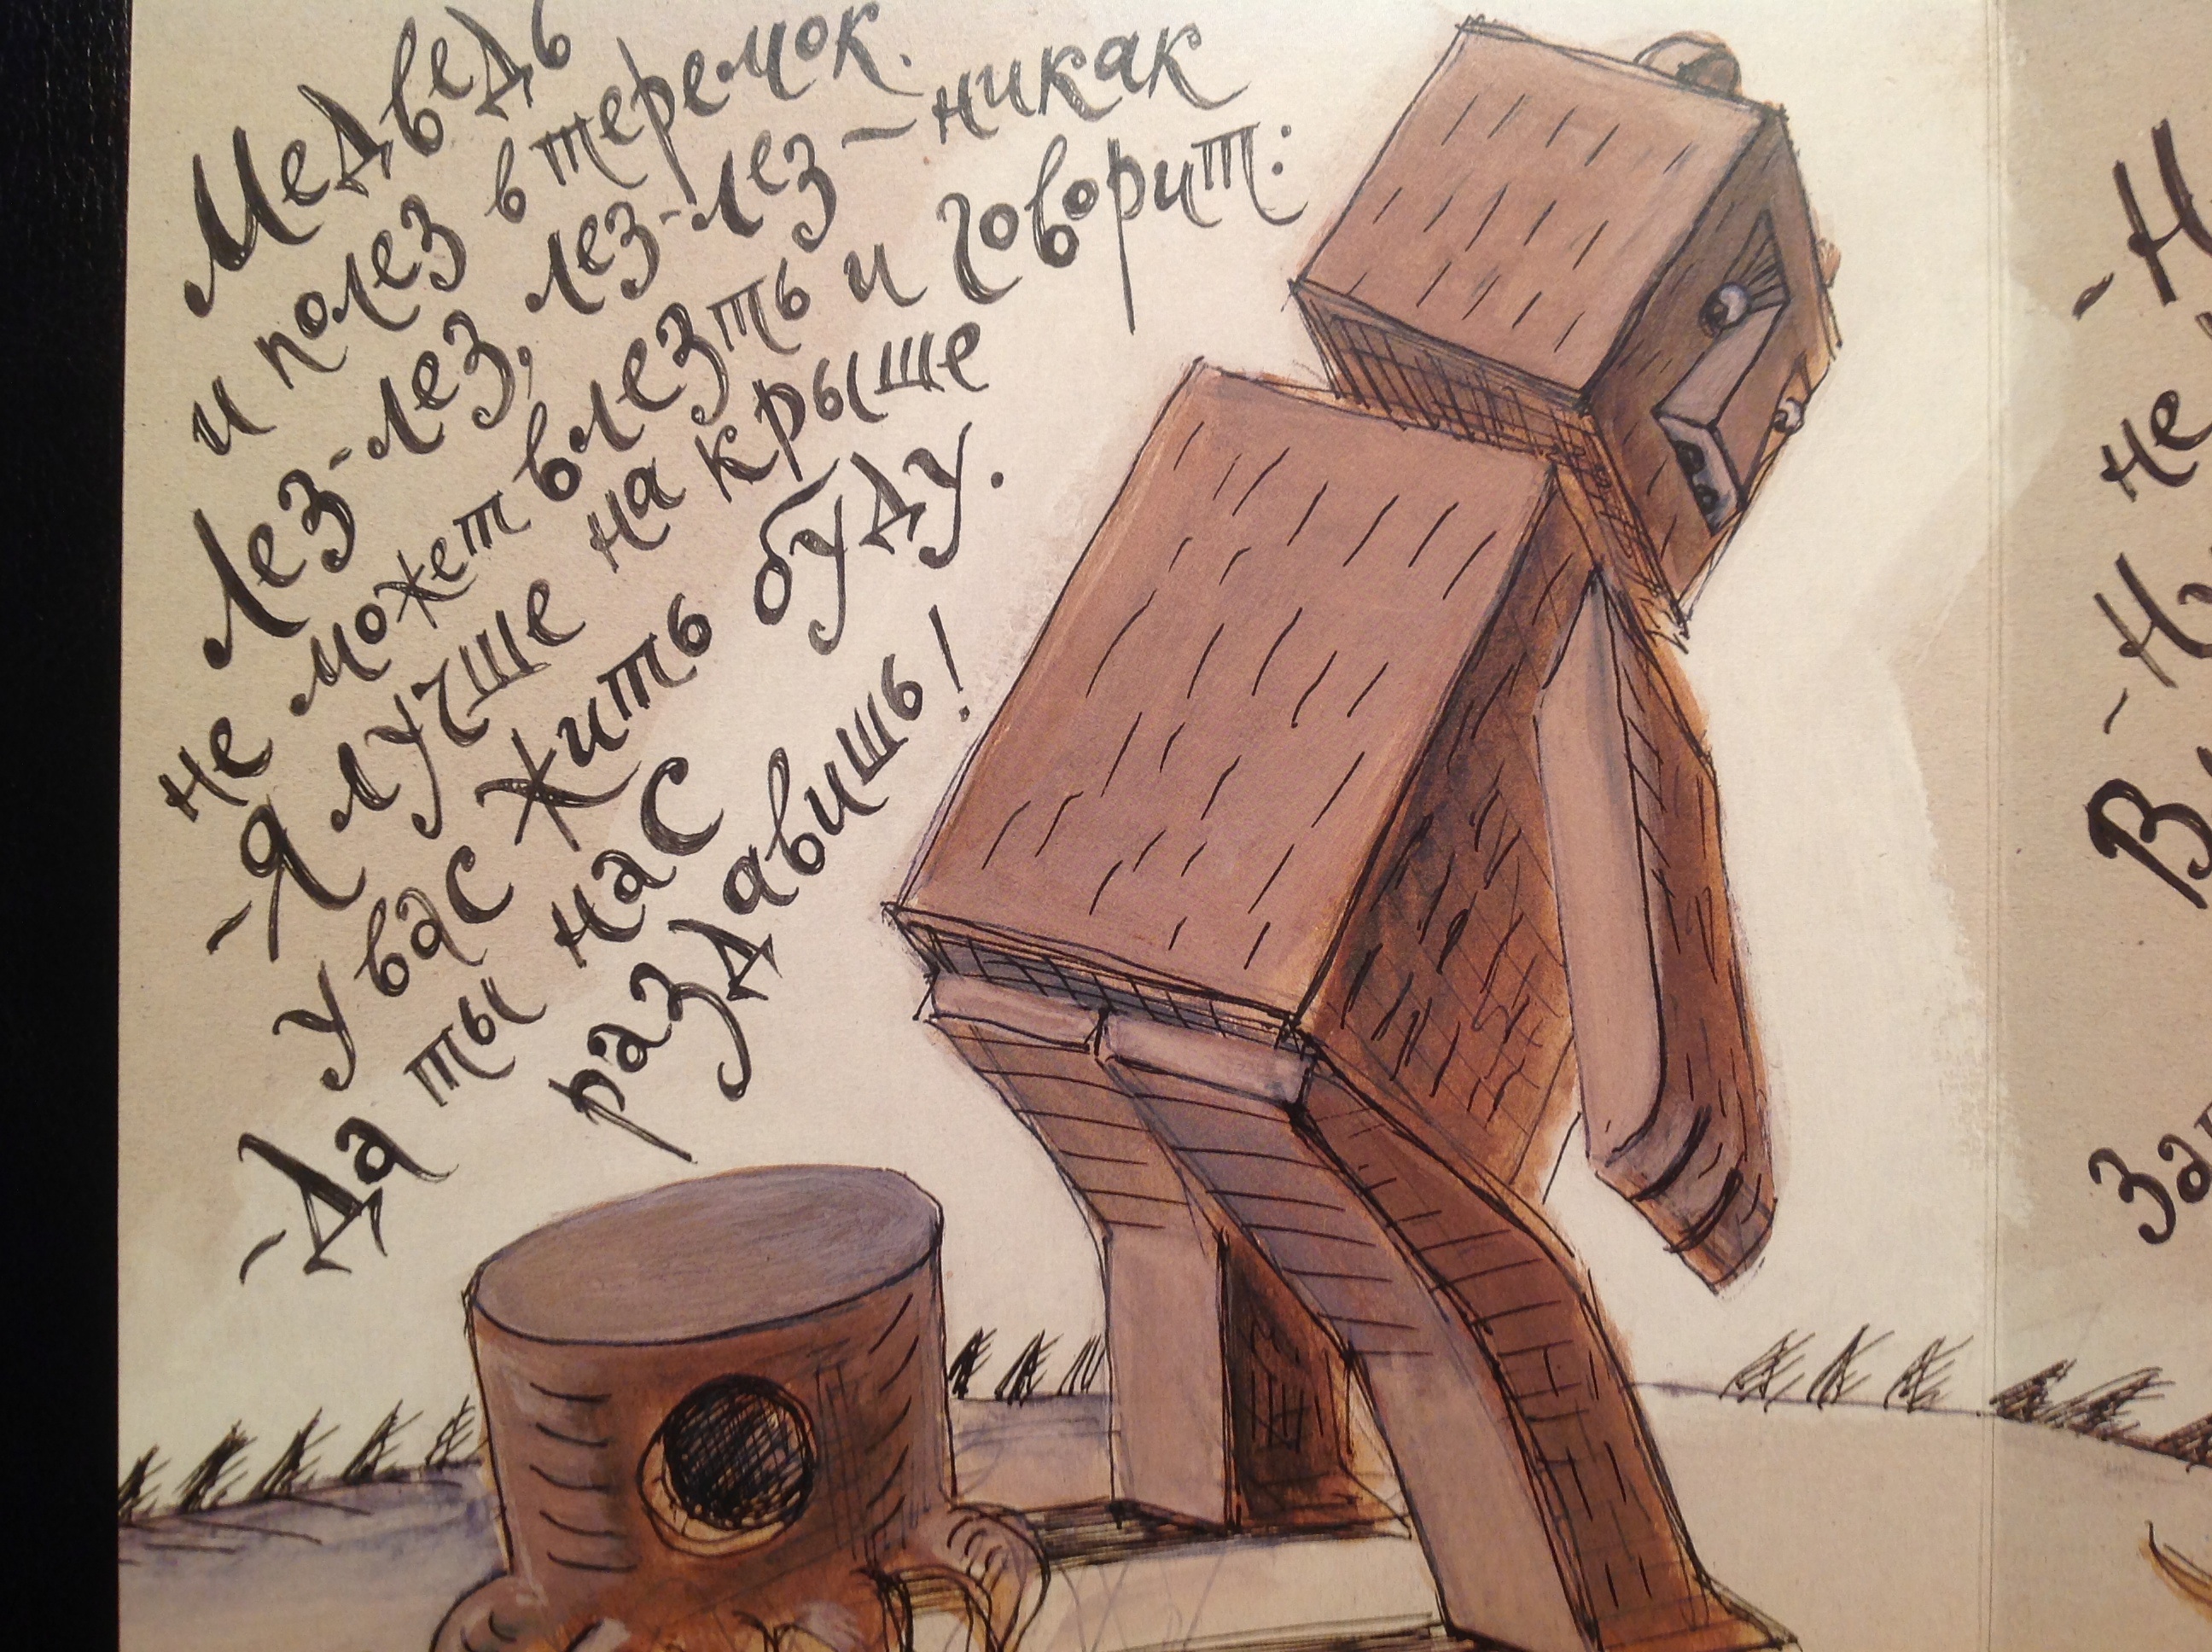 Медведь
и полез в теремок.
Лез-лез, лез-лез – никак
не может влезть и говорит:
-Я лучше на крыше
у вас жить буду.
-Да ты нас
раздавишь!
-Н
не
-Н
В